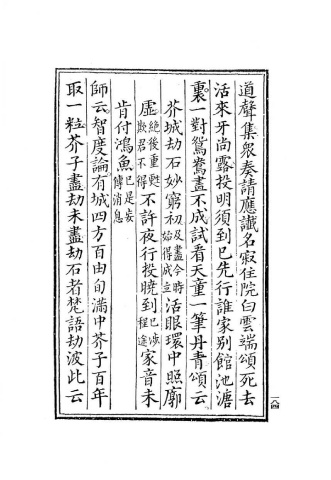 道聲集眾奏請應讖名寂住院白雲端頌死去
活來牙尚露投明須到已先行誰家別館池溏
裏一對鴛鴦畫不成試看天童一筆丹青頌云
芥城劫石妙窮初及盡今時始得成立活眼環中照廓
虛絕後重甦欺君不得不許夜行投曉到已涉程途家音未
肯付鴻魚已是妄傳消息
師云智度論有城四方百由旬滿中芥子百年
取一粒芥子盡劫未盡劫石者梵語劫波此云
一八四